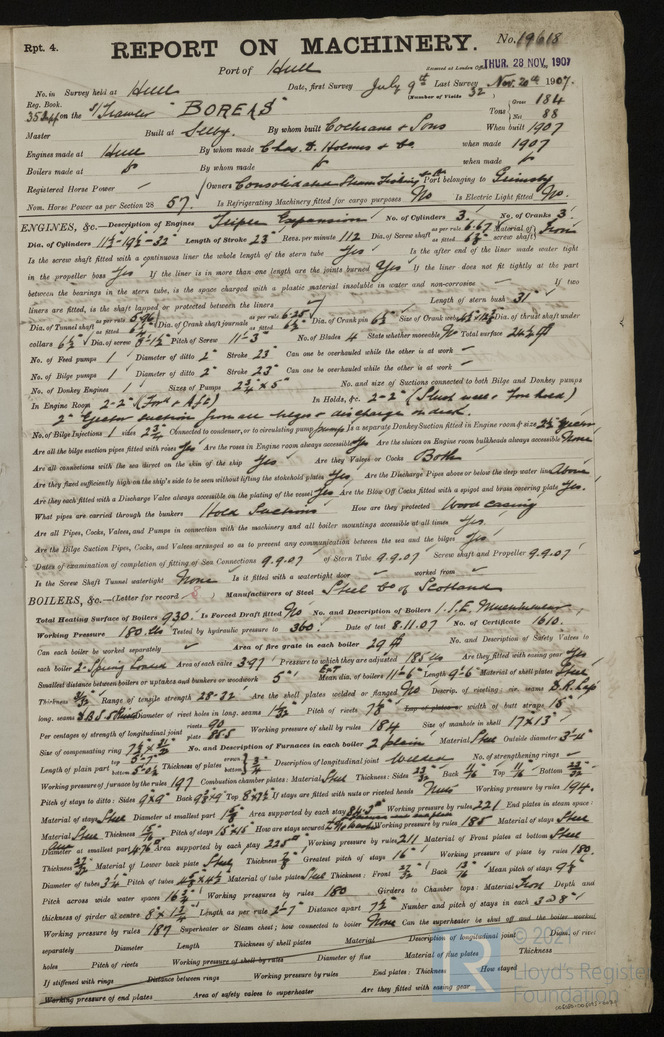 Rpt. 4. REPORT ON MACHINERY. No. 19618
Port of Hull Received at London Office THUR. 28 NOV. 1907
No. in Survey held at Hull Date, first Survey July 9th Last Survey Nov. 20th 1907.
Reg. Book. (Number of Visits 32)
on the S/Trawler "BOREAS" Tons { Gross 184 Net 88
Master Built at Selby. By whom built Cochrane & Sons When built 1907
Engines made at Hull By whom made Chas. D. Holmes & Co. when made 1907
Boilers made at Do By whom made Do when made Do
Registered Horse Power Owners Consolidated Steam Fishing Port belonging to Grimsby
Nom. Horse Power as per Section 28 57. Is Refrigerating Machinery fitted for cargo purposes No Is Electric Light fitted No.
ENGINES, &c.—Description of Engines Triple Expansion No. of Cylinders 3. No. of Cranks 3
Dia. of Cylinders 11½-19½-32 Length of Stroke 23" Revs. per minute 112 Dia. of Screw shaft as per rule 6.67 as fitted Material of screw shaft Iron
Is the screw shaft fitted with a continuous liner the whole length of the stern tube Yes Is the after end of the liner made water tight
in the propeller boss Yes If the liner is in more than one length are the joints burned Yes If the liner does not fit tightly at the part
between the bearings in the stern tube, is the space charged with a plastic material insoluble in water and non-corrosive If two
liners are fitted, is the shaft lapped or protected between the liners Length of stern bush 31"
Dia. of Tunnel shaft as per rule as fitted Dia. of Crank shaft journals as per rule 6.25 as fitted 6½ Dia. of Crank pin 6½ Size of Crank webs Dia. of thrust shaft under
collars 6½ Dia. of screw 8'-1½" Pitch of Screw 11'-3" No. of Blades 4 State whether moveable No Total surface
No. of Feed pumps 1 Diameter of ditto 2" Stroke 23" Can one be overhauled while the other is at work
No. of Bilge pumps 1 Diameter of ditto 2" Stroke 23" Can one be overhauled while the other is at work
No. of Donkey Engines 1 Sizes of Pumps 2¾" x 5" No. and size of Suctions connected to both Bilge and Donkey pumps
In Engine Room 2-2" (Ford & Aft) In Holds, &c. 2-2" (Slush well & Fore hold)
2" Ejector suction from all bilges & discharge on deck.
No. of Bilge Injections 1 sizes 2¾ Connected to condenser, or to circulating pump pump Is a separate Donkey Suction fitted in Engine room & size
Are all the bilge suction pipes fitted with roses Yes Are the roses in Engine room always accessible Yes Are the sluices on Engine room bulkheads always accessible None
Are all connections with the sea direct on the skin of the ship Yes Are they Valves or Cocks Both
Are they fixed sufficiently high on the ship's side to be seen without lifting the stokehold plates Yes Are the Discharge Pipes above or below the deep water line Above
Are they each fitted with a Discharge Valve always accessible on the plating of the vessel Yes Are the Blow Off Cocks fitted with a spigot and brass covering plate Yes.
What pipes are carried through the bunkers Hold Suctions How are they protected Wood casing
Are all Pipes, Cocks, Valves, and Pumps in connection with the machinery and all boiler mountings accessible at all times Yes.
Are the Bilge Suction Pipes, Cocks, and Valves arranged so as to prevent any communication between the sea and the bilges Yes
Dates of examination of completion of fitting of Sea Connections 9.9.07 of Stern Tube 9.9.07 Screw shaft and Propeller 9.9.07
Is the Screw Shaft Tunnel watertight None Is it fitted with a watertight door worked from
BOILERS, &c.—(Letter for record ) Manufacturers of Steel Steel Co of Scotland
Total Heating Surface of Boilers 930. Is Forced Draft fitted No No. and Description of Boilers 1. S.E.
Working Pressure 180 lbs Tested by hydraulic pressure to 360 Date of test 8.11.07 No. of Certificate 1610.
Can each boiler be worked separately Area of fire grate in each boiler 29 No. and Description of Safety Valves to
each boiler 2-Spring Loaded Area of each valve 3.97 Pressure to which they are adjusted 185 lbs Are they fitted with easing gear Yes
Smallest distance between boilers or uptakes and bunkers or woodwork 5" Mean dia. of boilers 11'-6" Length 9'-6 Material of shell plates Steel
Thickness Range of tensile strength 28-32 Are the shell plates welded or flanged No Descrip. of riveting: cir. seams D.R. Lap
long. seams Diameter of rivet holes in long. seams Pitch of rivets Lap of plates or width of butt straps 15"
Per centages of strength of longitudinal joint rivets 90 plate 85.5 Working pressure of shell by rules 184 Size of manhole in shell 17 x 13"
Size of compensating ring No. and Description of Furnaces in each boiler 2 plain Material Steel Outside diameter 3'-4"
Length of plain part top 5-7 bottom Thickness of plates crown bottom ¾ Description of longitudinal joint Welded No. of strengthening rings
Working pressure of furnace by the rules 197 Combustion chamber plates: Material Steel Thickness: Sides Back 11/16 Top 11/16 Bottom
Pitch of stays to ditto: Sides 9 x 9" Back Top If stays are fitted with nuts or riveted heads Nuts Working pressure by rules 194.
Material of stays Steel Diameter at smallest part Area supported by each stay Working pressure by rules 221 End plates in steam space:
Material Steel Thickness Pitch of stays 15 x 15 How are stays secured Working pressure by rules 185 Material of stays Steel
Diameter at smallest part Area supported by each stay 225 Working pressure by rules 211 Material of Front plates at bottom Steel
Thickness Material of Lower back plate Steel Thickness Greatest pitch of stays 16" Working pressure of plate by rules 180.
Diameter of tubes 3¼ Pitch of tubes Material of tube plates Steel Thickness: Front Back Mean pitch of stays
Pitch across wide water spaces Working pressures by rules 180 Girders to Chamber tops: Material Iron Depth and
thickness of girder at centre 8" x Length as per rule 2'-7" Distance apart 7½ Number and pitch of stays in each
Working pressure by rules 187 Superheater or Steam chest; how connected to boiler None Can the superheater be shut off and the boiler worked
separately Diameter Length Thickness of shell plates Material Description of longitudinal joint Diam. of rivet
holes Pitch of rivets Working pressure of shell by rules Diameter of flue Material of flue plates Thickness
If stiffened with rings Distance between rings Working pressure by rules End plates: Thickness How stayed
Working pressure of end plates Area of safety valves to superheater Are they fitted with easing gear
© 2021
Lloyd's Register
Foundation